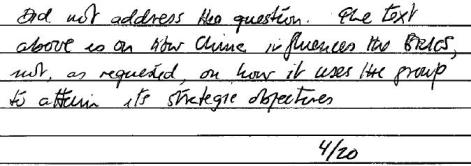 Did not address the question. The text
above is on how China influences the BRICS,
not, as requested, on how it uses the group
to attain its strategic objectives
4/20